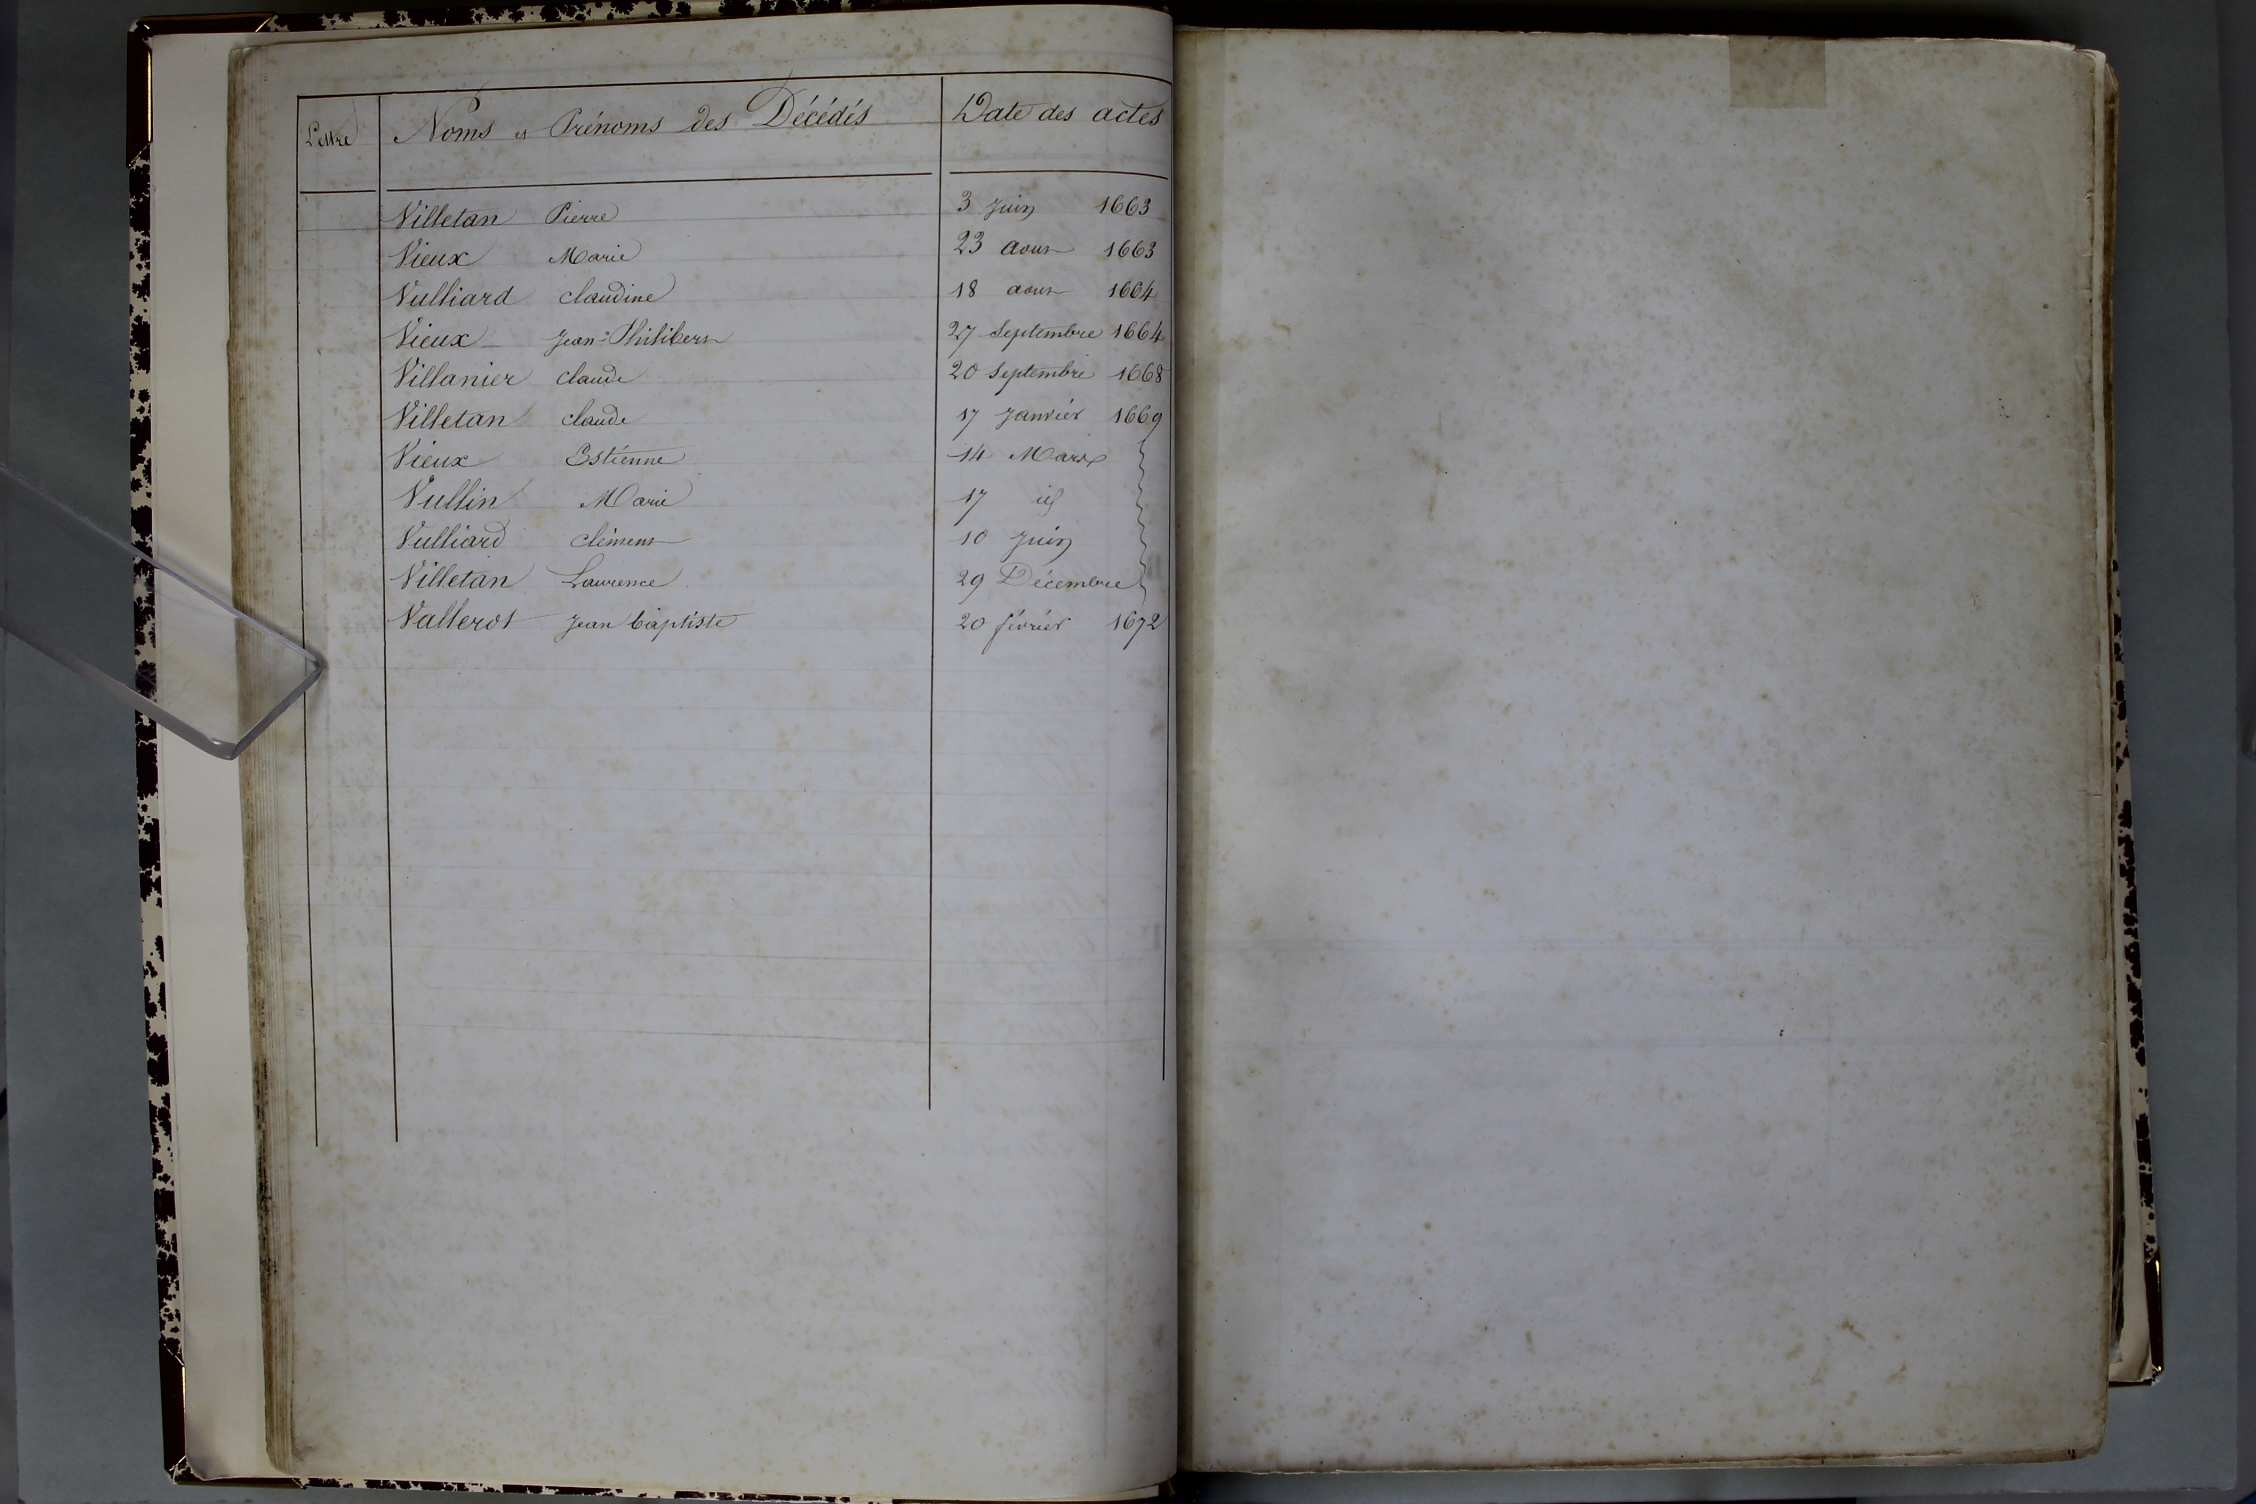 Lettre Noms et Prénoms des Décédés Date des actes
Villetan Pierre 3 Juin 1663
Vieux Marie 23 aout 1663
Vulliard claudine 18 aout 1664
Vieux Jean-Philibert 27 Septembre 1664
Villanier claude 20 Septembre 1668
Villetan claude 17 Janvier 1669
Vieux Estienne 14 Mars
Vullin Marie 17 id
Vulliard clément 10 Juin
Villetan Laurence 29 Décembre
Vallerot Jean baptiste 20 février 1672